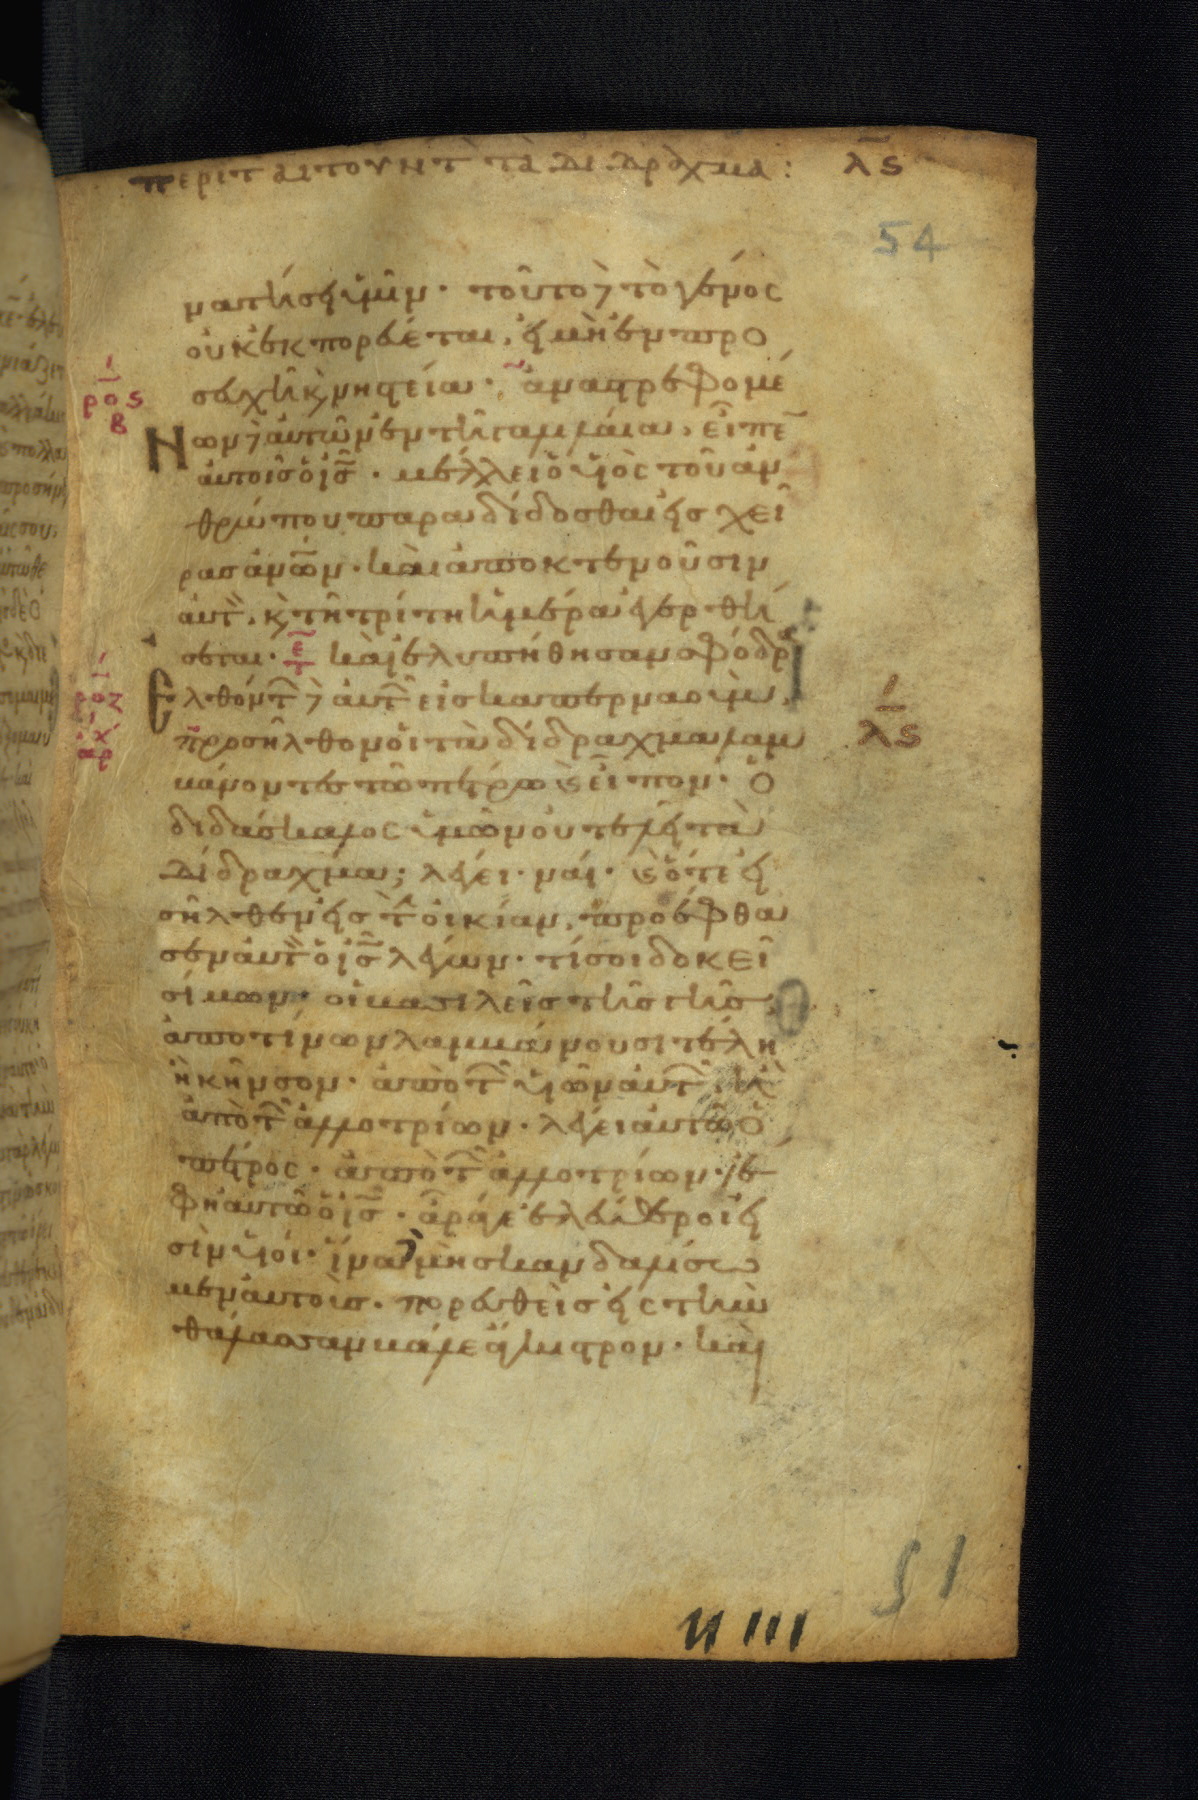 περι τ αιτουντ τὰ Δίδραχμα : λς
54
νατήσει ὑμῖν· τοῦτο δὲ τὸ γένος
οὐκ ἐκπορεύεται, εἰ μὴ ἐν προ
σευχῇ κ νηστεία· ἀναστρεφομέ
νων δὲ αὐτῶν ἐν τῇ γαλιλαία, εἶπεν
αὐτοῖς ὁ ις· μέλλει ὁ υἱὸς τοῦ ἀν
θρώπου παραδίδοσθαι εἰς χεῖ
ρας ἀνων· καὶ ἀποκτενοῦσιν
αὐτὸν, κ τῇ τρίτη ἡμέρα ἐγερθή
σεται· καὶ ἐλυπήθησαν σφόδρα
Ελθόντ δὲ αὐτ εἰς καπερναοὺμ,
προσῆλθον οἱ τὰ δίδραχμα λαμ
βάνοντες τῶ πέτρω κ εἶπον· ὁ
διδάσκαλος ὑμῶν οὐ τελεῖ τὰ
Δίδραχμα; λέγει· ναί· κ ὅτε εἰ
σῆλθεν εἰς τ οἰκίαν, προέφθα
σεν αὐτὸν ὁ ις λέγων· τί σοι δοκεῖ
σίμων· οἱ βασιλεῖς τῆς γῆς,
ἀπὸ τίνων λαμβάνουσι τέλη
ἢ κῆνσον· ἀπὸ τ υἱῶν αὐτ, ἢ
ἀπὸ τ ἀλλοτρίων· λέγει αὐτῶ ὁ
πέτρος· ἀπὸ τ ἀλλοτρίων· ἔ
φη αὐτῶ ὁ ις· ἄραγε ἐλεύθεροί εἰ
σὶν υἱοί· ἵνα δὲ μὴ σκανδαλίσω
μεν αὐτοὺς· πορευθεὶς εἰς τὴν
θάλασσαν βάλε ἄγκιστρον· καὶ
ρος
β
ροζ
λς
51